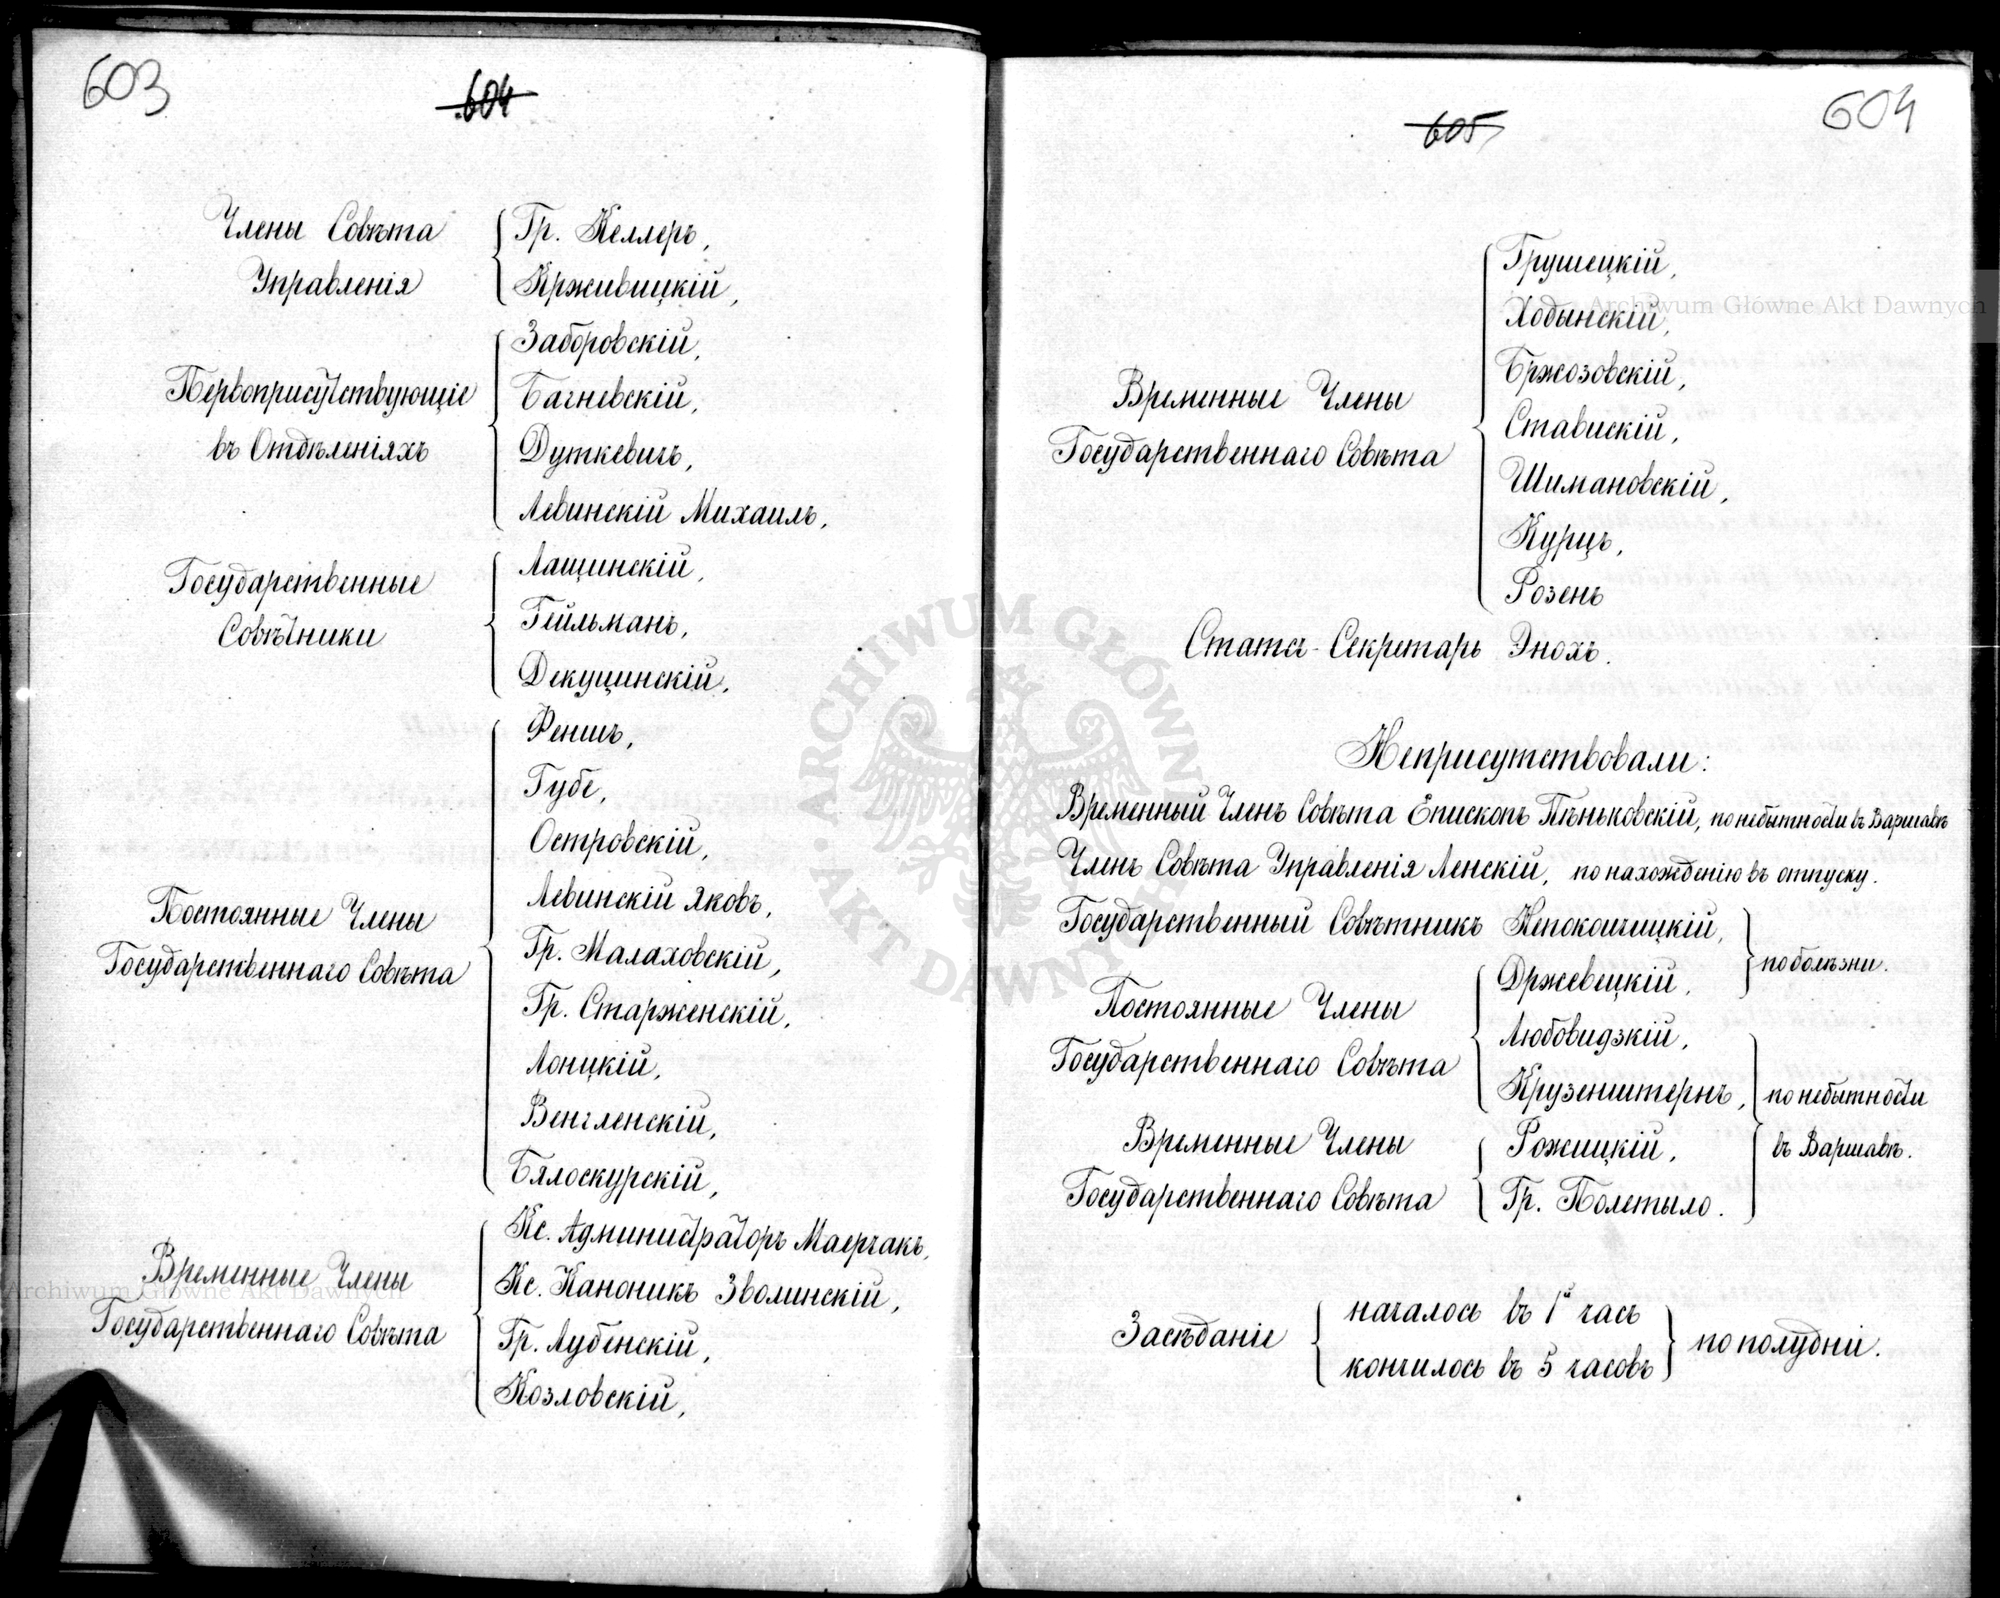 603
604
Члены Совѣта
Управленія
Гр. Келлеръ,
Крживицкій,
Первоприсутствующіе
въ Отдѣленіяхъ
Заборовскій,
Багневскій,
Дуткевичъ,
Левинскій Михаилъ,
Государственные
Совѣтники
Лащинскій,
Гейльманъ,
Декуцинскій,
Постоянные Члены
Государственнаго Совѣта
Феншъ,
Губе,
Островскій,
Левинскій Яковъ,
Гр. Малаховскій,
Гр. Старженскій,
Лонцкій,
Венгленскій,
Бялоскурскій,
Временные Члены
Государственнаго Совѣта
Кс. Администраторъ Маерчакъ,
Кс. Каноникъ Зволинскій,
Гр. Лубенскій,
Козловскій,
605
604
Временные Члены
Государственнаго Совѣта
Грушецкій,
Ходынскій,
Бржозовскій,
Ставискій,
Шимановскій,
Курцъ,
Розенъ
Статсъ-Секретарь Энохъ.
Неприсутствовали:
Временный Членъ Совѣта Епископъ Пѣньковскій, по небытности въ Варшавѣ
Членъ Совѣта Управленія Ленскій, по нахожденію въ отпуску.
Государственный Совѣтникъ Непокойчицкій,
Постоянные Члены
Государственнаго Совѣта
Држевецкій,
по болѣзни.
Любовидзкій,
Крузенштернъ,
Временные Члены
Государственнаго Совѣта
Рожицкій,
Гр. Полетыло.
по небытности
въ Варшавѣ.
Засѣданіе
началось въ 1й часъ
кончилось въ 5 часовъ
по полудни.
Archiwum Główne Akt Dawnych
Archiwum Główne Akt Dawnych
ARCHIWUM GŁÓWNE AKT DAWNYCH